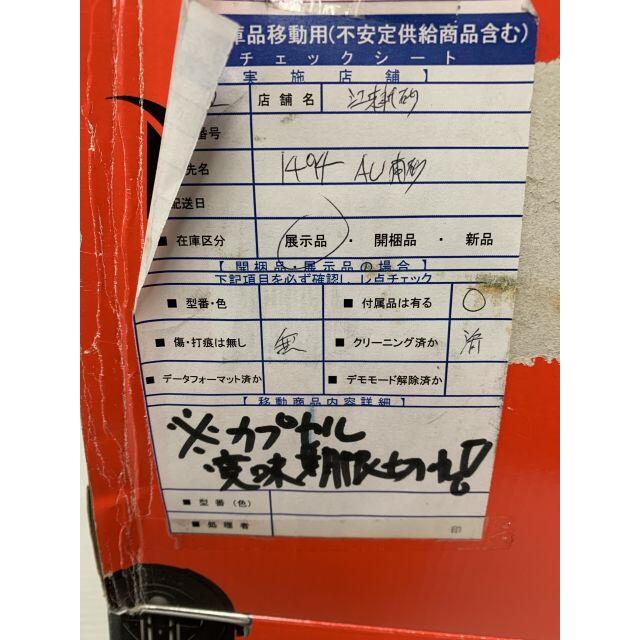 庫品移動用(不安定供給商品含む)
チェックシート
実施店舗】
店舗名
番号
先名 1494 AU南砂
配送日
■ 在庫区分 展示品 ・ 開梱品 ・ 新品
【 開梱品・展示品の場合 】
下記項目を必ず確認し、レ点チェック
■ 型番・色 ■ 付属品は有る ○
■ 傷・打痕は無し 無 ■ クリーニング済か 済
■ データフォーマット済か ■ デモモード解除済か
【 移動商品内容詳細 】
※カプセル
賞味期限切れ!
■ 型番（色）
■ 処理者 印